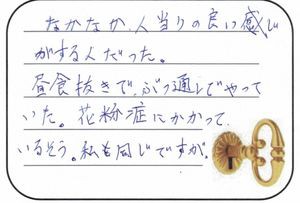 なかなか、人当りの良い感じ
がする人だった。
昼食抜きで、ぶっ通しでやって
いた。花粉症にかかって
いるそう。私も同じですが。